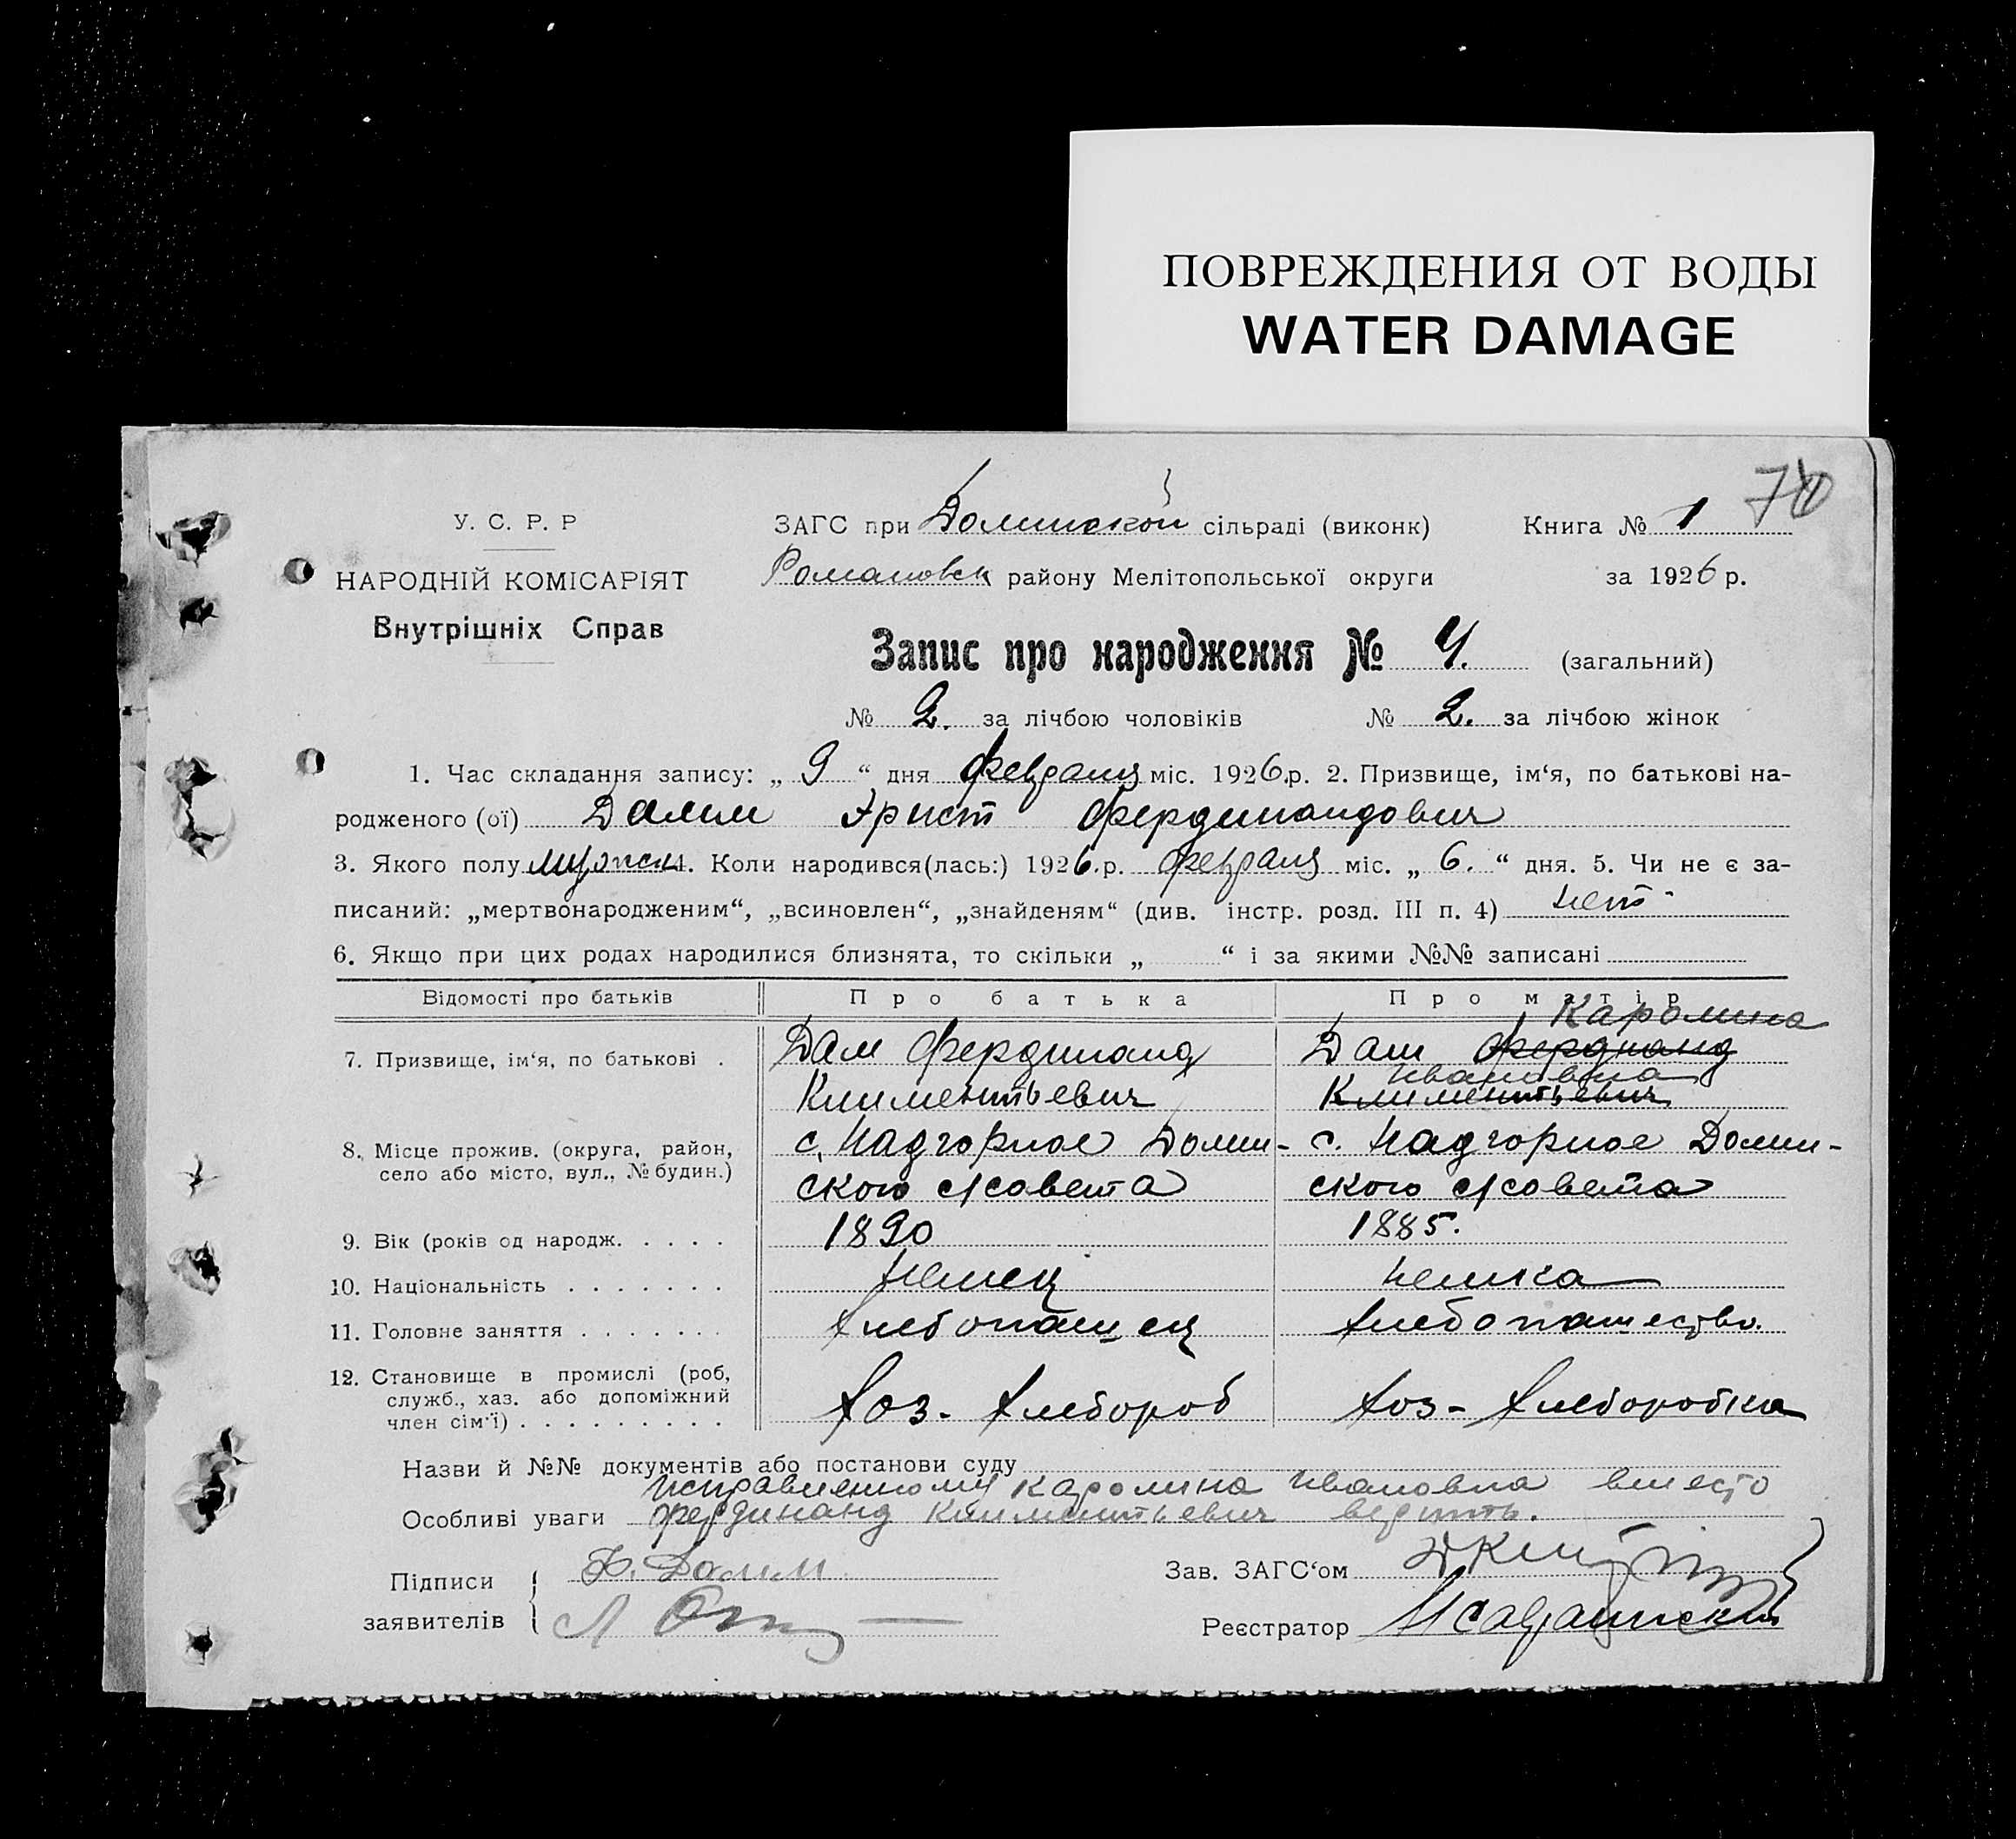 ПОВРЕЖДЕНИЯ ОТ ВОДЫ
WATER DAMAGE
70
У. С. Р. Р
НАРОДНІЙ КОМІСАРІЯТ
Внутрішніх Справ
ЗАГС при Долинской сільраді (виконк) Книга № 1
Романовск району Мелітопольської округи за 1926 р.
Запис про народження № 4. (загальний)
№ 2. за лічбою чоловіків № 2. за лічбою жінок
1. Час складання запису: „ 9 “ дня февраля міс. 1926.р. 2. Призвище, ім‘я, по батькові на-
родженого (ої) Дамм Эрист Фердинандович
3. Якого полу мужск 4. Коли народився(лась:) 1926.р. февраля міс. „ 6. “ дня. 5. Чи не є за-
писаний: „мертвонародженим“, „всиновлен“, „знайденям“ (див. інстр. розд. III п. 4) нет
6. Якщо при цих родах народилися близнята, то скільки „ “ і за якими №№ записані
Відомості про батьків Про батька Про матір
Каролина
7. Призвище, ім‘я, по батькові . Дам Фердинанд Дам Фердинанд
Ивановна
Климентьевич Климентьевич
8. Місце прожив. (округа, район, с. Надгорное Долин- с. Надгорное Долин-
село або місто, вул., № будин.) ского с/совета ского с/совета
9. Вік (років од народж. . . . . 1890 1885.
10. Національність . . . . . . . немец немка
11. Головне заняття . . . . . . . хлебопашец хлебопашество.
12. Становище в промислі (роб,
служб., хаз. або допоміжний хоз- хлебороб хоз- хлеборобка
член сім‘ї) . . . . . . . . .
Назви й №№ документів або постанови суду
Исправленному Каролина Ивановна вместо
Особливі уваги Фердинанд Климентьевич верить.
Підписи Ф. Дамм Зав. ЗАГС‘ом
заявителів Реєстратор